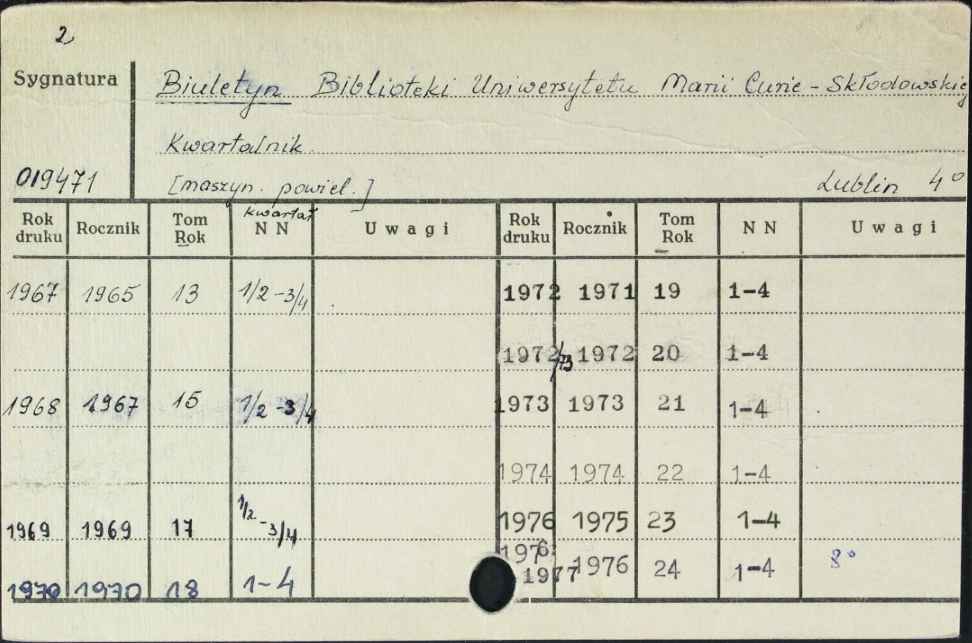 2
Sygnatura
Biuletyn Biblioteki Uniwersytetu Marii Curie - Skłodowskiej
Kwartalnik
019471
[maszyn. powiel.]
Lublin 4°
Rok druku Rocznik Tom Rok kwartał NN Uwagi Rok druku Rocznik Tom Rok NN Uwagi
1967 1965 13 1/2 -3/4 1972 1971 19 1-4
1972/73 1972 20 1-4
1968 1967 15 1/2 -3/4 1973 1973 21 1-4
1974 1974 22 1-4
1969 1969 17 1/2 -3/4 1976 1975 23 1-4
1976 1977 1976 24 1-4 8°
1970 1970 18 1-4